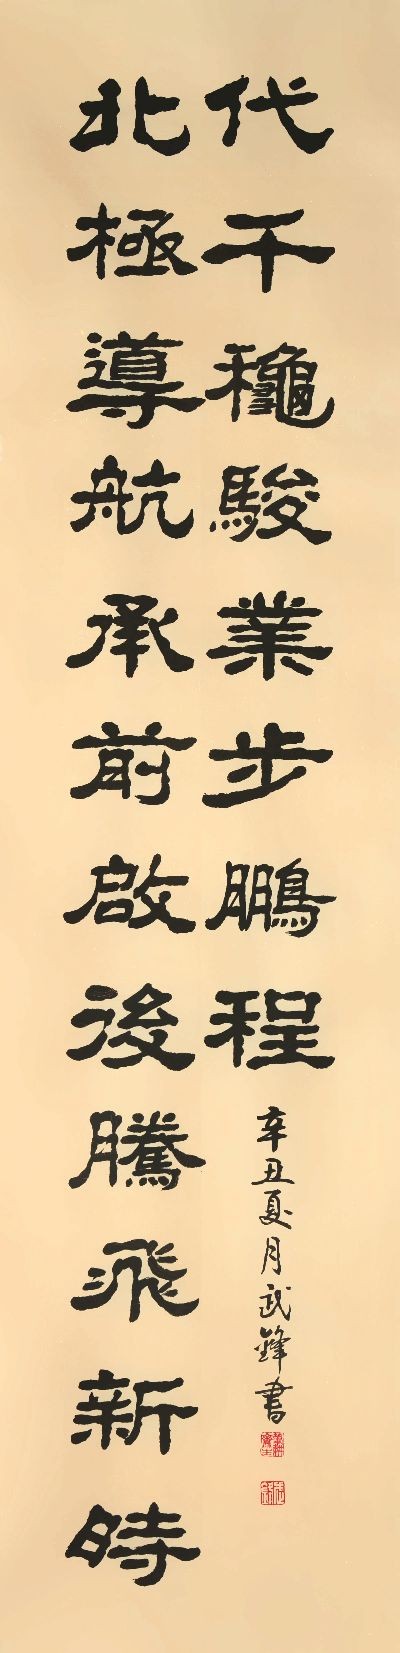 北極導航承前啟後騰飛新時
代千龝駿業步鵬程
辛丑夏月武鋒書